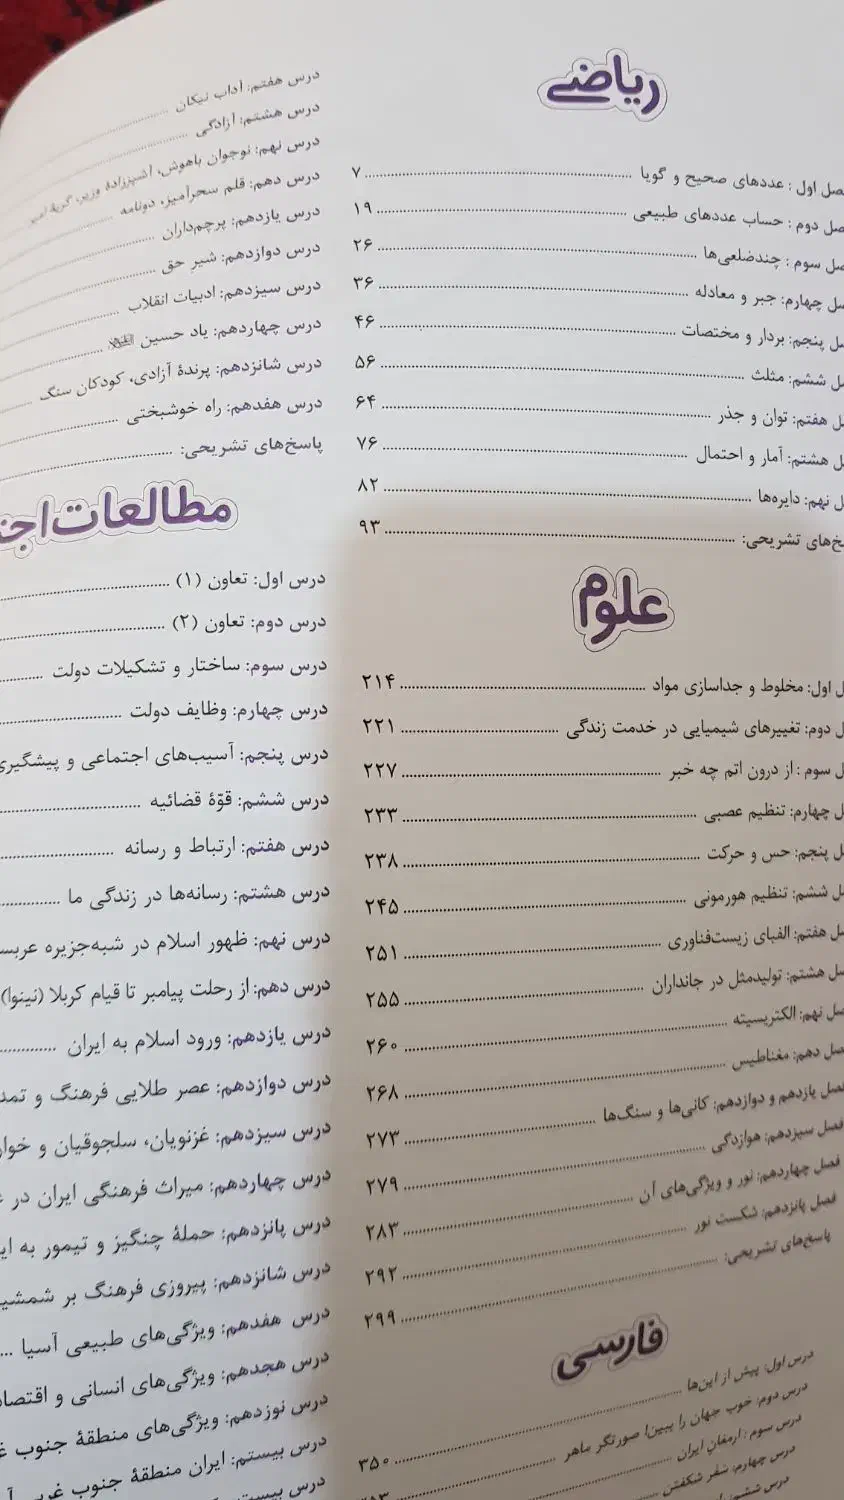 ریاضی
صل اول : عددهای صحیح و گویا ۷
صل دوم : حساب عددهای طبیعی ۱۹
صل سوم : چندضلعی‌ها ۲۶
سل چهارم: جبر و معادله ۳۶
سل پنجم: بردار و مختصات ۴۶
ل ششم: مثلث ۵۶
ل هفتم: توان و جذر ۶۴
ل هشتم: آمار و احتمال ۷۶
ل نهم: دایره‌ها ۸۲
خ‌های تشریحی: ۹۳
علوم
ل اول: مخلوط و جداسازی مواد ۲۱۴
ل دوم: تغییرهای شیمیایی در خدمت زندگی ۲۲۱
ل سوم : از درون اتم چه خبر ۲۲۷
ل چهارم: تنظیم عصبی ۲۳۳
ل پنجم: حس و حرکت ۲۳۸
ل ششم: تنظیم هورمونی ۲۴۵
ل هفتم: الفبای زیست‌فناوری ۲۵۱
صل هشتم: تولیدمثل در جانداران ۲۵۵
صل نهم: الکتریسیته ۲۶۰
صل دهم: مغناطیس ۲۶۸
فصل یازدهم و دوازدهم: کانی‌ها و سنگ‌ها ۲۷۳
فصل سیزدهم: هوازدگی ۲۷۹
فصل چهاردهم: نور و ویژگی‌های آن ۲۸۳
فصل پانزدهم: شکست نور ۲۹۲
پاسخ‌های تشریحی: ۲۹۹
فارسی
درس اول: پیش از این‌ها ۳۵۰
درس دوم: خوب جهان را ببین! صورتگر ماهر
درس سوم : ارمغان ایران
درس چهارم: سفر شکفتن
درس ششم:
درس هفتم: آداب نیکان
درس هشتم: آزادگی
درس نهم: نوجوان باهوش، آشپززادهٔ وزیر، گریهٔ امیر
درس دهم: قلم سحرآمیز، دونامه
درس یازدهم: پرچم‌داران
درس دوازدهم: شیر حق
درس سیزدهم: ادبیات انقلاب
درس چهاردهم: یاد حسین
درس شانزدهم: پرندهٔ آزادی، کودکان سنگ
درس هفدهم: راه خوشبختی
پاسخ‌های تشریحی:
مطالعات اجتـ
درس اول: تعاون (۱)
درس دوم: تعاون (۲)
درس سوم: ساختار و تشکیلات دولت
درس چهارم: وظایف دولت
درس پنجم: آسیب‌های اجتماعی و پیشگیری
درس ششم: قوّهٔ قضائیه
درس هفتم: ارتباط و رسانه
درس هشتم: رسانه‌ها در زندگی ما
درس نهم: ظهور اسلام در شبه‌جزیره عربس
درس دهم: از رحلت پیامبر تا قیام کربلا (نینوا)
درس یازدهم: ورود اسلام به ایران
درس دوازدهم: عصر طلایی فرهنگ و تمد
درس سیزدهم: غزنویان، سلجوقیان و خوار
درس چهاردهم: میراث فرهنگی ایران در ع
درس پانزدهم: حملهٔ چنگیز و تیمور به ای
درس شانزدهم: پیروزی فرهنگ بر شمشیـ
درس هفدهم: ویژگی‌های طبیعی آسیا
درس هجدهم: ویژگی‌های انسانی و اقتصاد
درس نوزدهم: ویژگی‌های منطقهٔ جنوب غ
درس بیستم: ایران منطقهٔ جنوب غربی آ
درس بیست